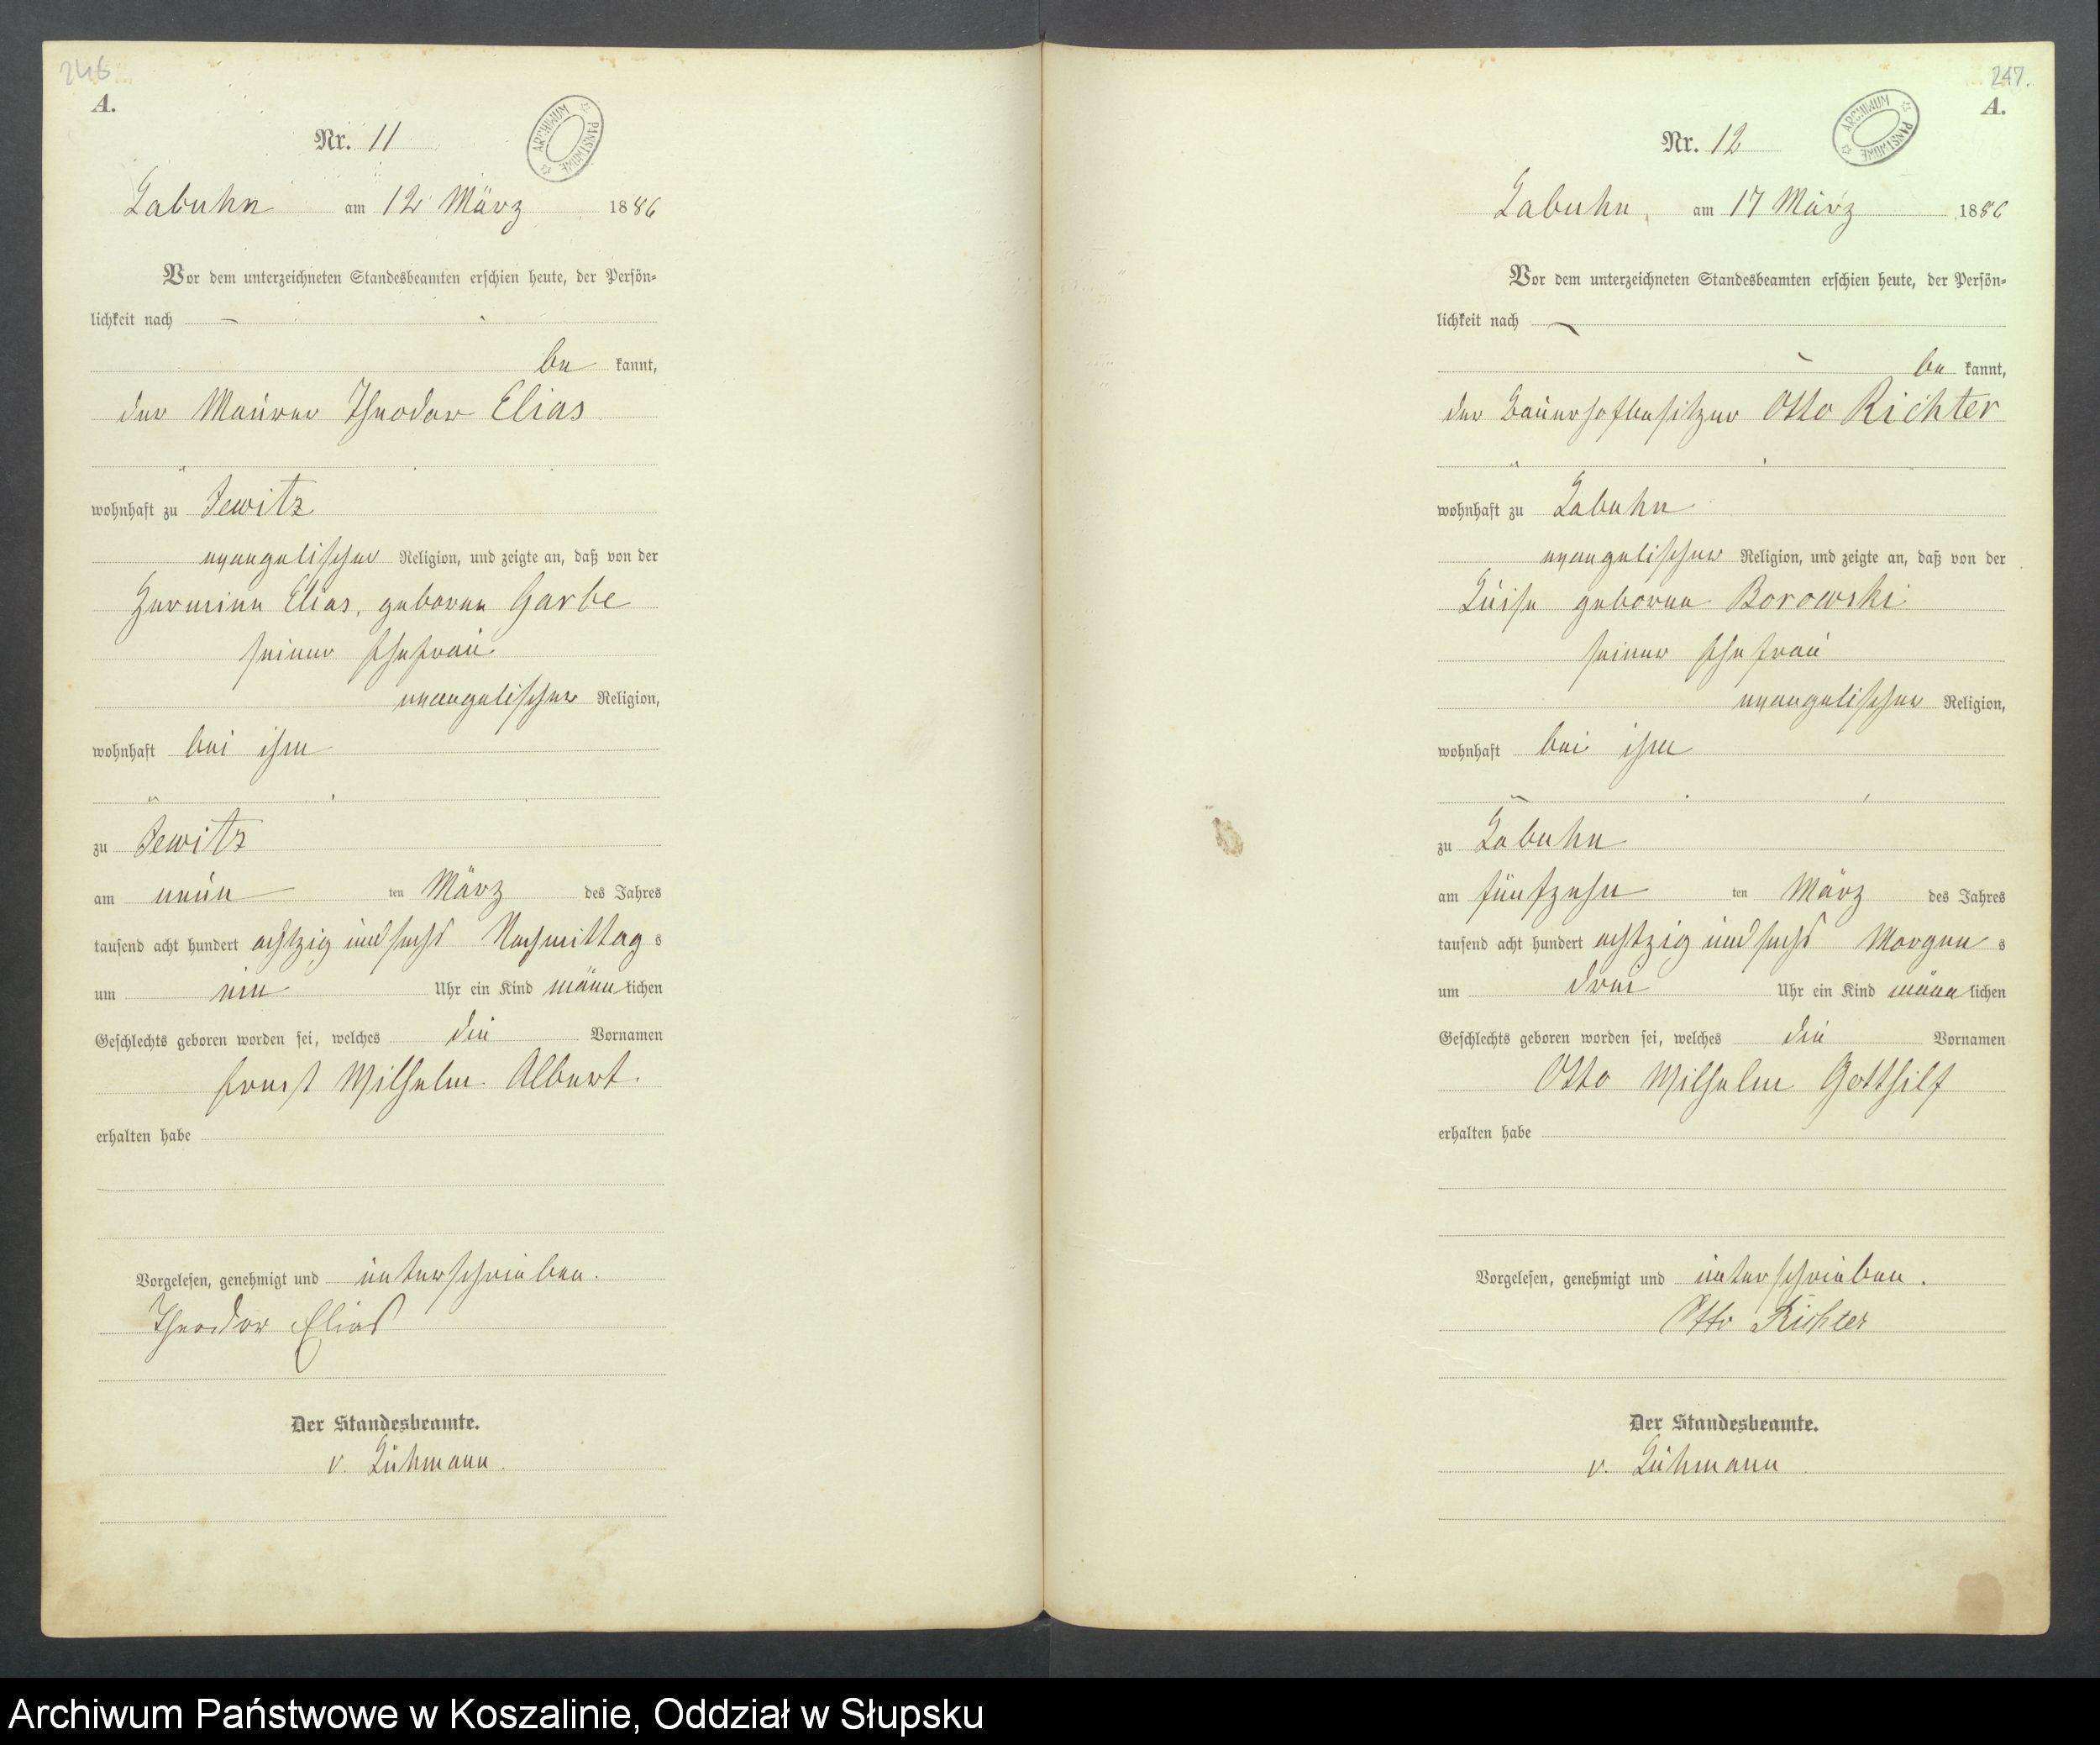 246
A.
ARCHIWUM PAŃSTWOWE
Nr. 11
Labuhn am 12 März 1886
Vor dem unterzeichneten Standesbeamten erschien heute, der Persön-
lichkeit nach
be kannt,
der Maurer Theodor Elias
wohnhaft zu Jewitz
evangelischer Religion, und zeigte an, daß von der
Hermine Elias, geborene Garbe
seiner Ehefrau
evangelischer Religion,
wohnhaft bei ihm
zu Jewitz
am neun ten März des Jahres
tausend acht hundert achtzig und sechs Nachmittag s
um ein Uhr ein Kind männlichen
Geschlechts geboren worden sei, welches die Vornamen
Ernst Wilhelm Albert
erhalten habe
Vorgelesen, genehmigt und unterschrieben.
Theodor Elias
Der Standesbeamte.
v. Lühmann.
247.
A.
ARCHIWUM PAŃSTWOWE
Nr. 12
Labuhn, am 17 März 1886
Vor dem unterzeichneten Standesbeamten erschien heute, der Persön-
lichkeit nach
be kannt,
der Bauerhofbesitzer Otto Richter
wohnhaft zu Labuhn
evangelischer Religion, und zeigte an, daß von der
Luise geborene Borowski
seiner Ehefrau
evangelischer Religion,
wohnhaft bei ihm
zu Labuhn
am fünfzehn ten März des Jahres
tausend acht hundert achtzig und sechs Morgen s
um drei Uhr ein Kind männlichen
Geschlechts geboren worden sei, welches die Vornamen
Otto Wilhelm Gotthilf
erhalten habe
Vorgelesen, genehmigt und unterschrieben.
Otto Richter
Der Standesbeamte.
v. Lühmann.
Archiwum Państwowe w Koszalinie, Oddział w Słupsku